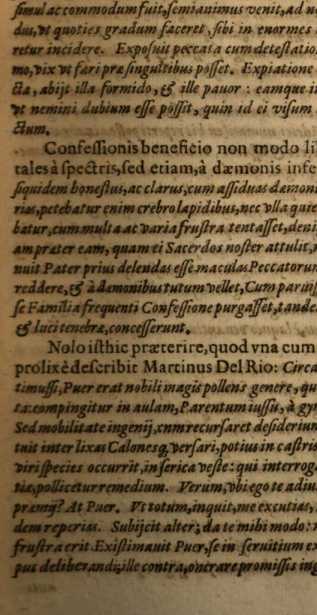 simulac commodum fuit, semianimus venit, ad n
dus, vt quoties gradum faceret, sibi in enormes
retur incidere. Exposuit peccata cum detestation
mo, vix vt fari præ singultibus posset. Expiatione
cta, abijt illa formido, & ille pauor: eamque i
vt nemini dubium esse possit, quin id ei visum
ctum.
Confessionis beneficio non modo li
tales à spectris, sed etiam, à dæmonis infe
siquidem honestus, ac clarus, cum assiduas dæmoni
rias, petebatur enim crebro lapidibus, nec vlla quie
batur, cum multa ac varia frustra tentasset, deni
am præter eam, quam ei Sacerdos noster attulit, r
nuit Pater prius delendas esse maculas Peccatorum
reddere, & à dæmonibus tutum vellet, Cum parius
se Familia frequenti Confessione purgasset, tande
& luci tenebræ, concesserunt.
Nolo isthic præterire, quod vna cum
prolixè describit Martinus Del Rio: Circa
timussi, Puer erat nobili magis pollens genere, qu
ta: compingitur in aulam, Parentum iussu, à gy
Sed mobilitate ingenij, cum recursaret desiderium
tuit inter lixas Calonesq, versari, potius in castris
viri species occurrit, in serica veste: qui interroga
tiæ, pollicetur remedium. Verum, vbi ego te adiu
præmij? At Puer. Vt totum, inquit, me excutias,
dem reperias. Subijcit alter; da te mihi modo: n
frustra erit. Existimauit Puer, se in seruitium ex
pus deliberandi; ille contra, onerare promissis ing